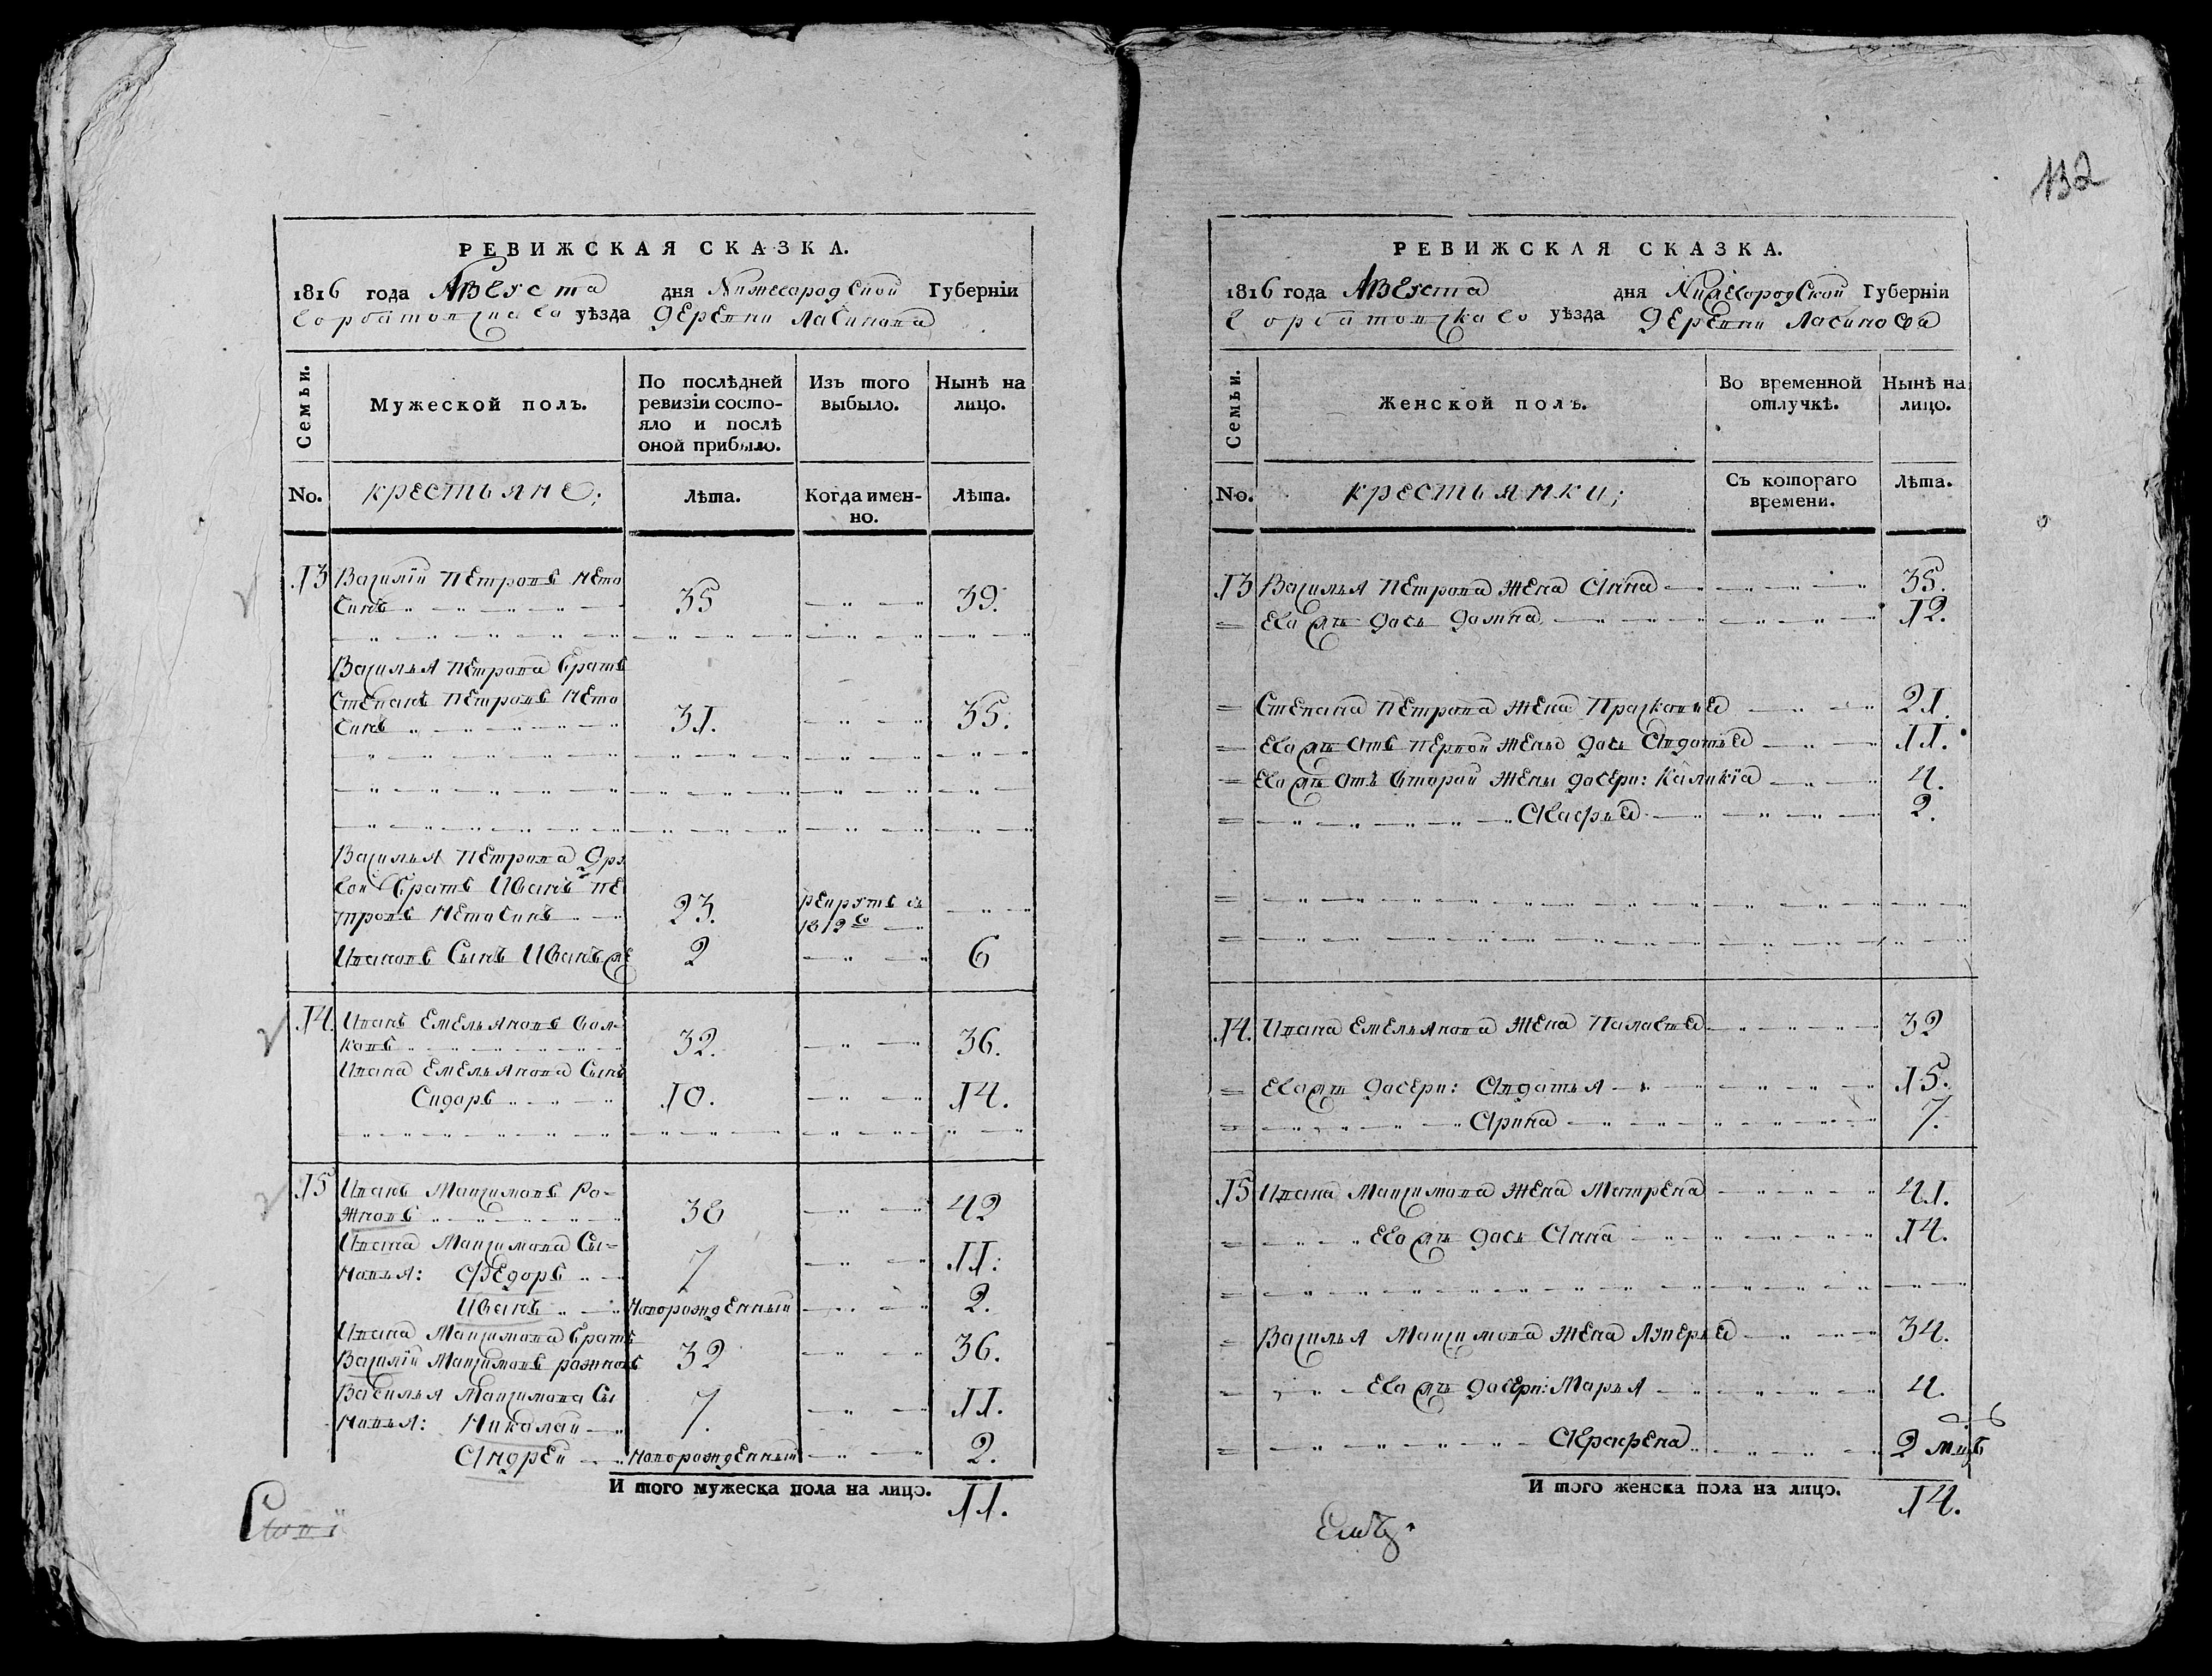 РЕВИЖСКАЯ СКАЗКА.
1816 года Августа дня Нижегородской Губерніи
Горбатовскаго уѣзда деревни
Семьи.
Мужеской полъ.
По послѣдней ревизіи состояло и послѣ оной прибыло.
Изъ того выбыло.
Нынѣ на лицо.
No.
крестьяне;
Лѣта.
Когда именно.
Лѣта.
13 Василий Петровъ
35 39.
Василья Петрова братъ
Степанъ Петровъ
31. 35.
Василья Петрова дру
гой братъ Иванъ Пе
тровъ 23. рекрутъ въ
1812го
Ивановъ сынъ Иванъ же 2 6
14. Иванъ Емельяновъ Вол=
ковъ 32. 36.
Ивана Емельянова сынъ
Сидоръ 10. 14.
15 Иванъ Максимовъ Ро=
жновъ 38 42
Ивана Максимова сы=
новья: Федоръ 7 11.
Иванъ новорожденный 2.
Ивана Максимова братъ
Василий Максимовъ рожновъ 32 36.
Василья Максимова сы
новья: Николай 7. 11.
Андрей новорожденный 2.
И того мужеска пола на лицо. 11.
132
РЕВИЖСКАЯ СКАЗКА.
1816 года Августа дня Нижегородской Губерніи
Горбатовскаго уѣзда деревни
Семьи.
Женской полъ.
Во временной отлучкѣ.
Нынѣ на лицо.
No.
крестьянки;
Съ котораго времени.
Лѣта.
13 Василья Петрова жена Анна 35.
Его жъ дочь Домна 12.
Степана Петрова жена Прасковья 21.
Его жъ отъ первой жены дочь Авдотья 11.
Его жъ отъ второй жены дочери: 4.
Агафья 2.
14. Ивана Емельянова жена Палагея 32
Его жъ дочери: Авдотья 15.
Арина 7.
15 Ивана Максимова жена Матрена 41.
Его жъ дочь Анна 14.
Василья Максимова жена Лукерья 34.
Его жъ дочери: Марья 4.
Аграфена 2
И того женска пола на лицо. 14.